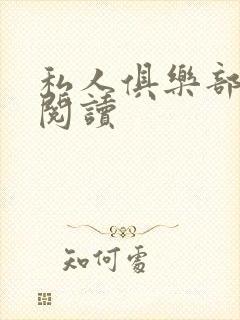 私人俱樂部
閱讀
知何處